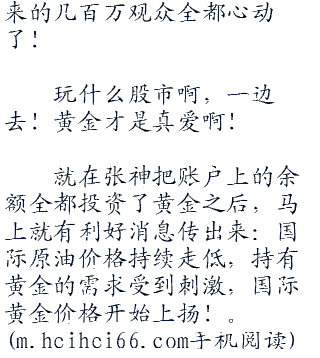 来的几百万观众全都心动
了！
玩什么股市啊，一边
去！黄金才是真爱啊！
就在张神把账户上的余
额全都投资了黄金之后，马
上就有利好消息传出来：国
际原油价格持续走低，持有
黄金的需求受到刺激，国际
黄金价格开始上扬！。
(m.hcihci66.com手机阅读)